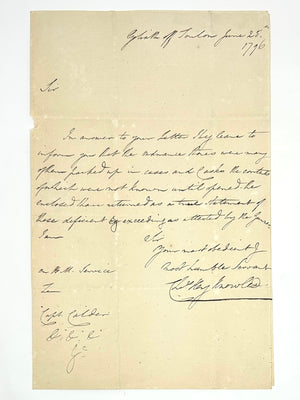 Goliath off Toulon June 25th
1796
Sir
In answer to your letter I beg leave to
inform you that the ordnance stores were many
of them packed up in cases and Casks the contents
of which were not known until opened, the
enclosed I have returned as a true statement of
those deficient & exceeding as attested by the
I am
Sir
Your most obedient &
most humble Servant
Knowles
on H.M. Service
To
Capt. Calder
&c &c &c